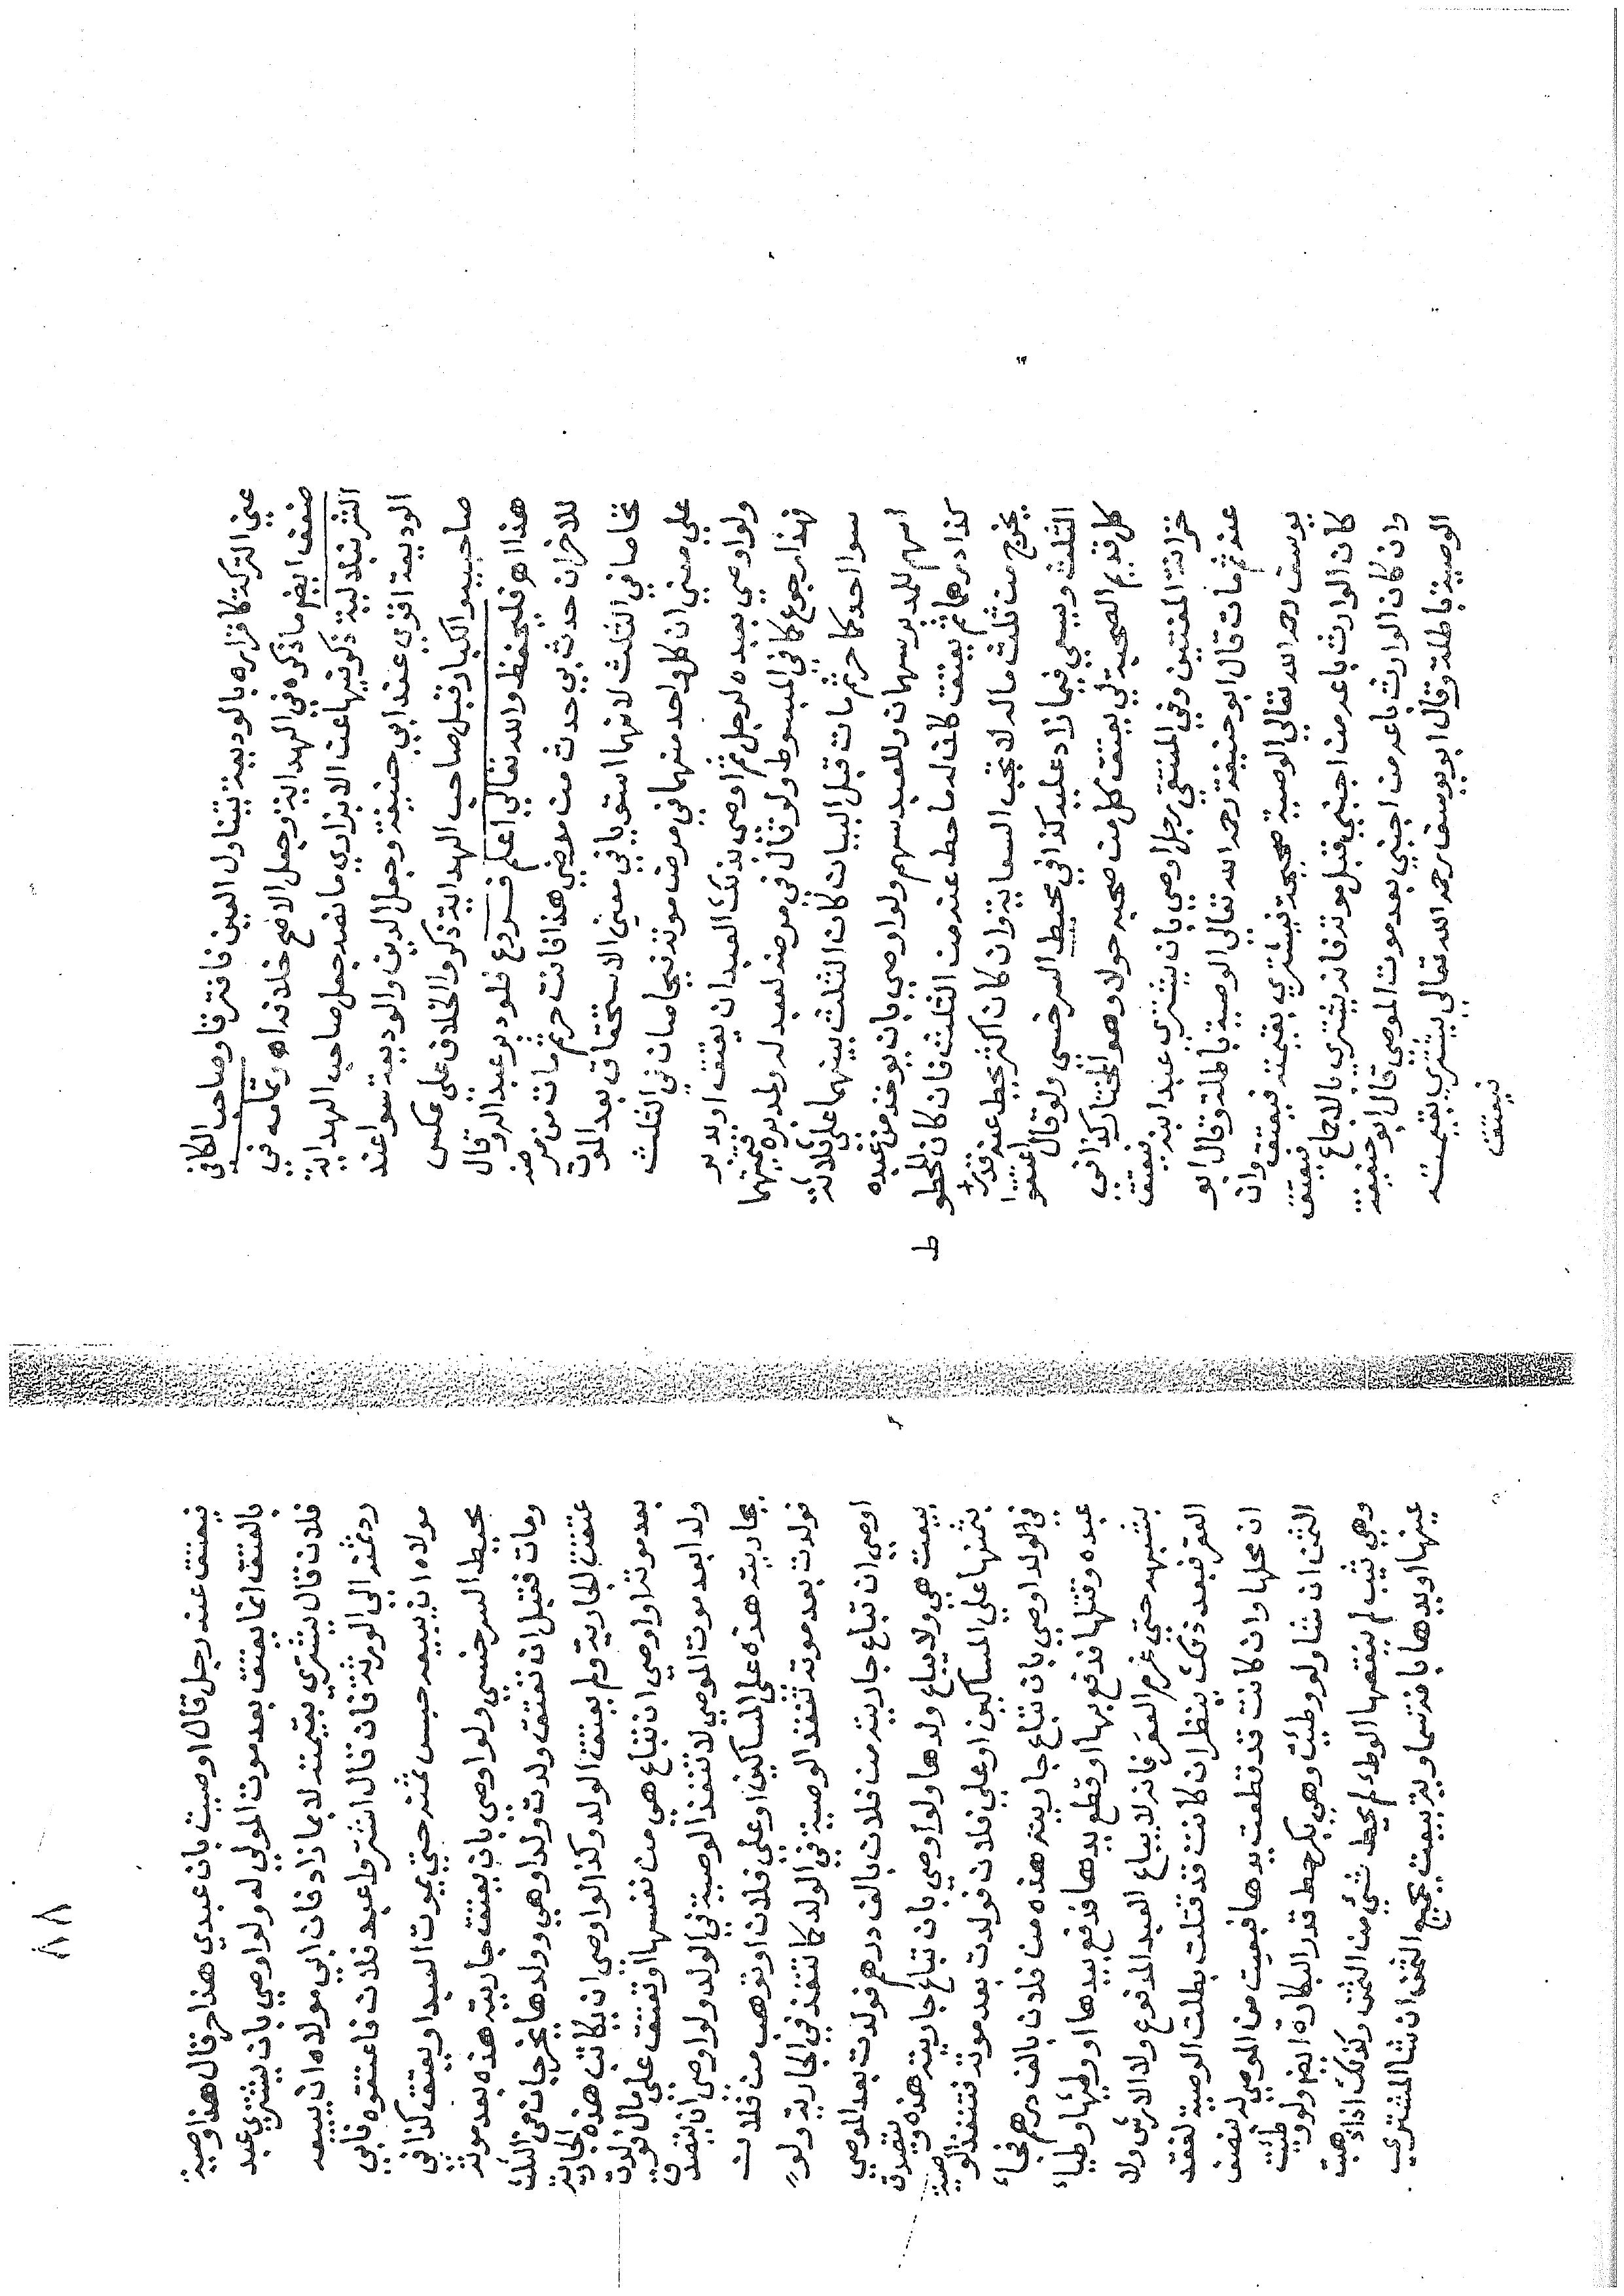 عين التركة كاقراره بالوديعة تيتناول العين فافترقا وصاحب الكافي
ضعف ايضم ماذكره في الهداية وجعل الاصح خلافه اه وتمامه في
الشرنبلالية ذكرتها عن الابزاري ما نصه جعل صاحب الهداية
الوديعة اقوي عند ابي حنيفة وجعل الدين والوديعة سواعند
صاحبيه والكبار قبل صاحب الهداية ذكروا الخلاف علي عكس
هذا اهر فليحفظ والله تعالي اعلم فروع فلو دبر عبد الو قال
للاخر ان حدث بي حدث من مرضي هذا فانت حر ثم مات من مرضه
تحاصا في الثلث لانهما استويا في معني الاستحقاق بعد الموت
علي معني ان كل واحد منهما في مرض موته تيحاصان في الثلث
ولواوصي بعبده لرجل ثم اوصي بذلك العبد ان يعتق او يدبر
فهذا رجوع كما في المبسوط ولو قال في مرضه لعبد له ولمدبره قيمتهما
سوا احد كما حر ثم مات قبل البيان كان الثلث بينهما علي ثلاثة
اسهم للمدبر سهمان وللعبد سهم ولواوصي بان يوخذ من عبده
كذا درهما ثم يعتق كان له ما حط عنه من الثلث فان كان المحطوط
يخرج من ثلث ماله لا تجب السعاية وان كان اكثر يحط عنه قدر
الثلث ويسعي فيما زاد عليه كذا في محيط السرخسي ولو قال اعتقوا
كل قديم الصحبة لي يعتق كل من صحبه حولا وهو المختار كذا في
خزانة المفتيين وفي المنتقي رجل اوصي بان يشتري عبد ابنه فيعتق
عنه ثم مات قال ابو حنيفة رحمه الله تعالي الوصية باطلة وقال ابو
يوسف رحمه الله تعالي الوصية صحيحة فيشتري بقيمته فيعتق وان
كان الوارث باعه من اجنبي قبل موته فانه يشتري بالاجماع فيعتق
وان كان الوارث باعه من اجنبي بعد موت الموصي قال ابو حنيفة
الوصية باطلة وقال ابو يوسف رحمه الله تعالي يشتري بقيمته
فيعتق
٨٨
فيعتق عند رجل قال اوصيت بان عبدي هذا حر قال هذا وصية
بالعتق انما يعتق بعد موت المولي له ولواوصي بان يشتري عبد
فلان قال يشتري بقيمته لا بما زاد فان ابي مولاه ان يبيعه
رد ثمنه الي الورثة فان قال اشتروا عبد فلان فاعتقوه فابي
مولاه ان يبيعه حبس ثمنه حتي يموت العبد او يعتق كذا في
محيط السرخسي ولواوصي بان يعتق جاريته هذه بعد موته
ومات فقبل ان تعتق ولدت ولدا وهي وولدها يخرجان من الثلث
عتقت الجارية ولم يعتق الولد وكذا لواوصي ان يكاتب هذه الجارية
بعد موته اواوصي ان تباع هي من نفسها او تعتق علي مال فولدت
ولدا بعد موت الموصي لا تنفذ الوصية في الولد ولواوصي ان يتصدق
بجاريته هذه علي المساكين او علي فلان او توهب من فلان
فولدت بعد موته تنفذ الوصية في الولد كما تنفذ في الجارية ولو
اوصي ان تباع جاريته من فلان بالف درهم فولدت بعد الموصي
بيعت هي ولا يباع ولدها ولواوصي بان تباع جاريته هذه ويتصدق
بثمنها علي المساكين او علي فلان فولدت بعد موته تنتفذ الوصية
في الولد اوصي بان تباع جاريته هذه من فلان بالف درهم فجاء
عبد وقتلها فدفع بها او قطع يدها فدفع بيدها او وطيها واطئ
بشبهة حتي غرم العقر فانه لا يباع العبد المدفوع ولا الارش ولا
العقر فبعد ذلك ينظران كانت قد قتلت بطلت الوصية لفقد
ان محلها وان كانت قد قطعت يدها فبيعت من الموصي له بنصف
الثمن ان شا ولو وطئت وهي بكر حط قدر البكارة ايضم ولو وطئت
وهي ثيب لم ينقصها الوطء لم يحط شيء من الثمن وكذلك اذا ذهبت
عينها او يدها بافة سماوية بيعت بجميع الثمن ان شا المشتري